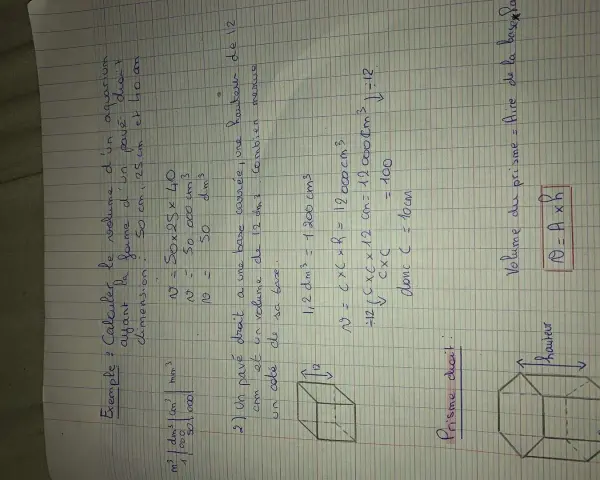 Exemple : Calculer le volume d'un aquarium
ayant la forme d'un pavé droit
dimension : 50 cm, 25 cm et 40 cm
V = 50 x 25 x 40
V = 50 000 cm³
V = 50 dm³
m³ | dm³ | cm³ | mm³
1 000
50 000
2) Un pavé droit a une base carrée, une hauteur de 12
cm et un volume de 12 dm³ combien mesure
un coté de sa base.
12
1,2 dm³ = 1 200 cm³
V = c x c x h = 12 000 cm³
÷12 ( c x c x 12 cm = 12 000 cm³ ) ÷12
c x c = 100
donc c = 10 cm
Prisme droit :
hauteur
Volume du prisme = Aire de la base x
V = A x h